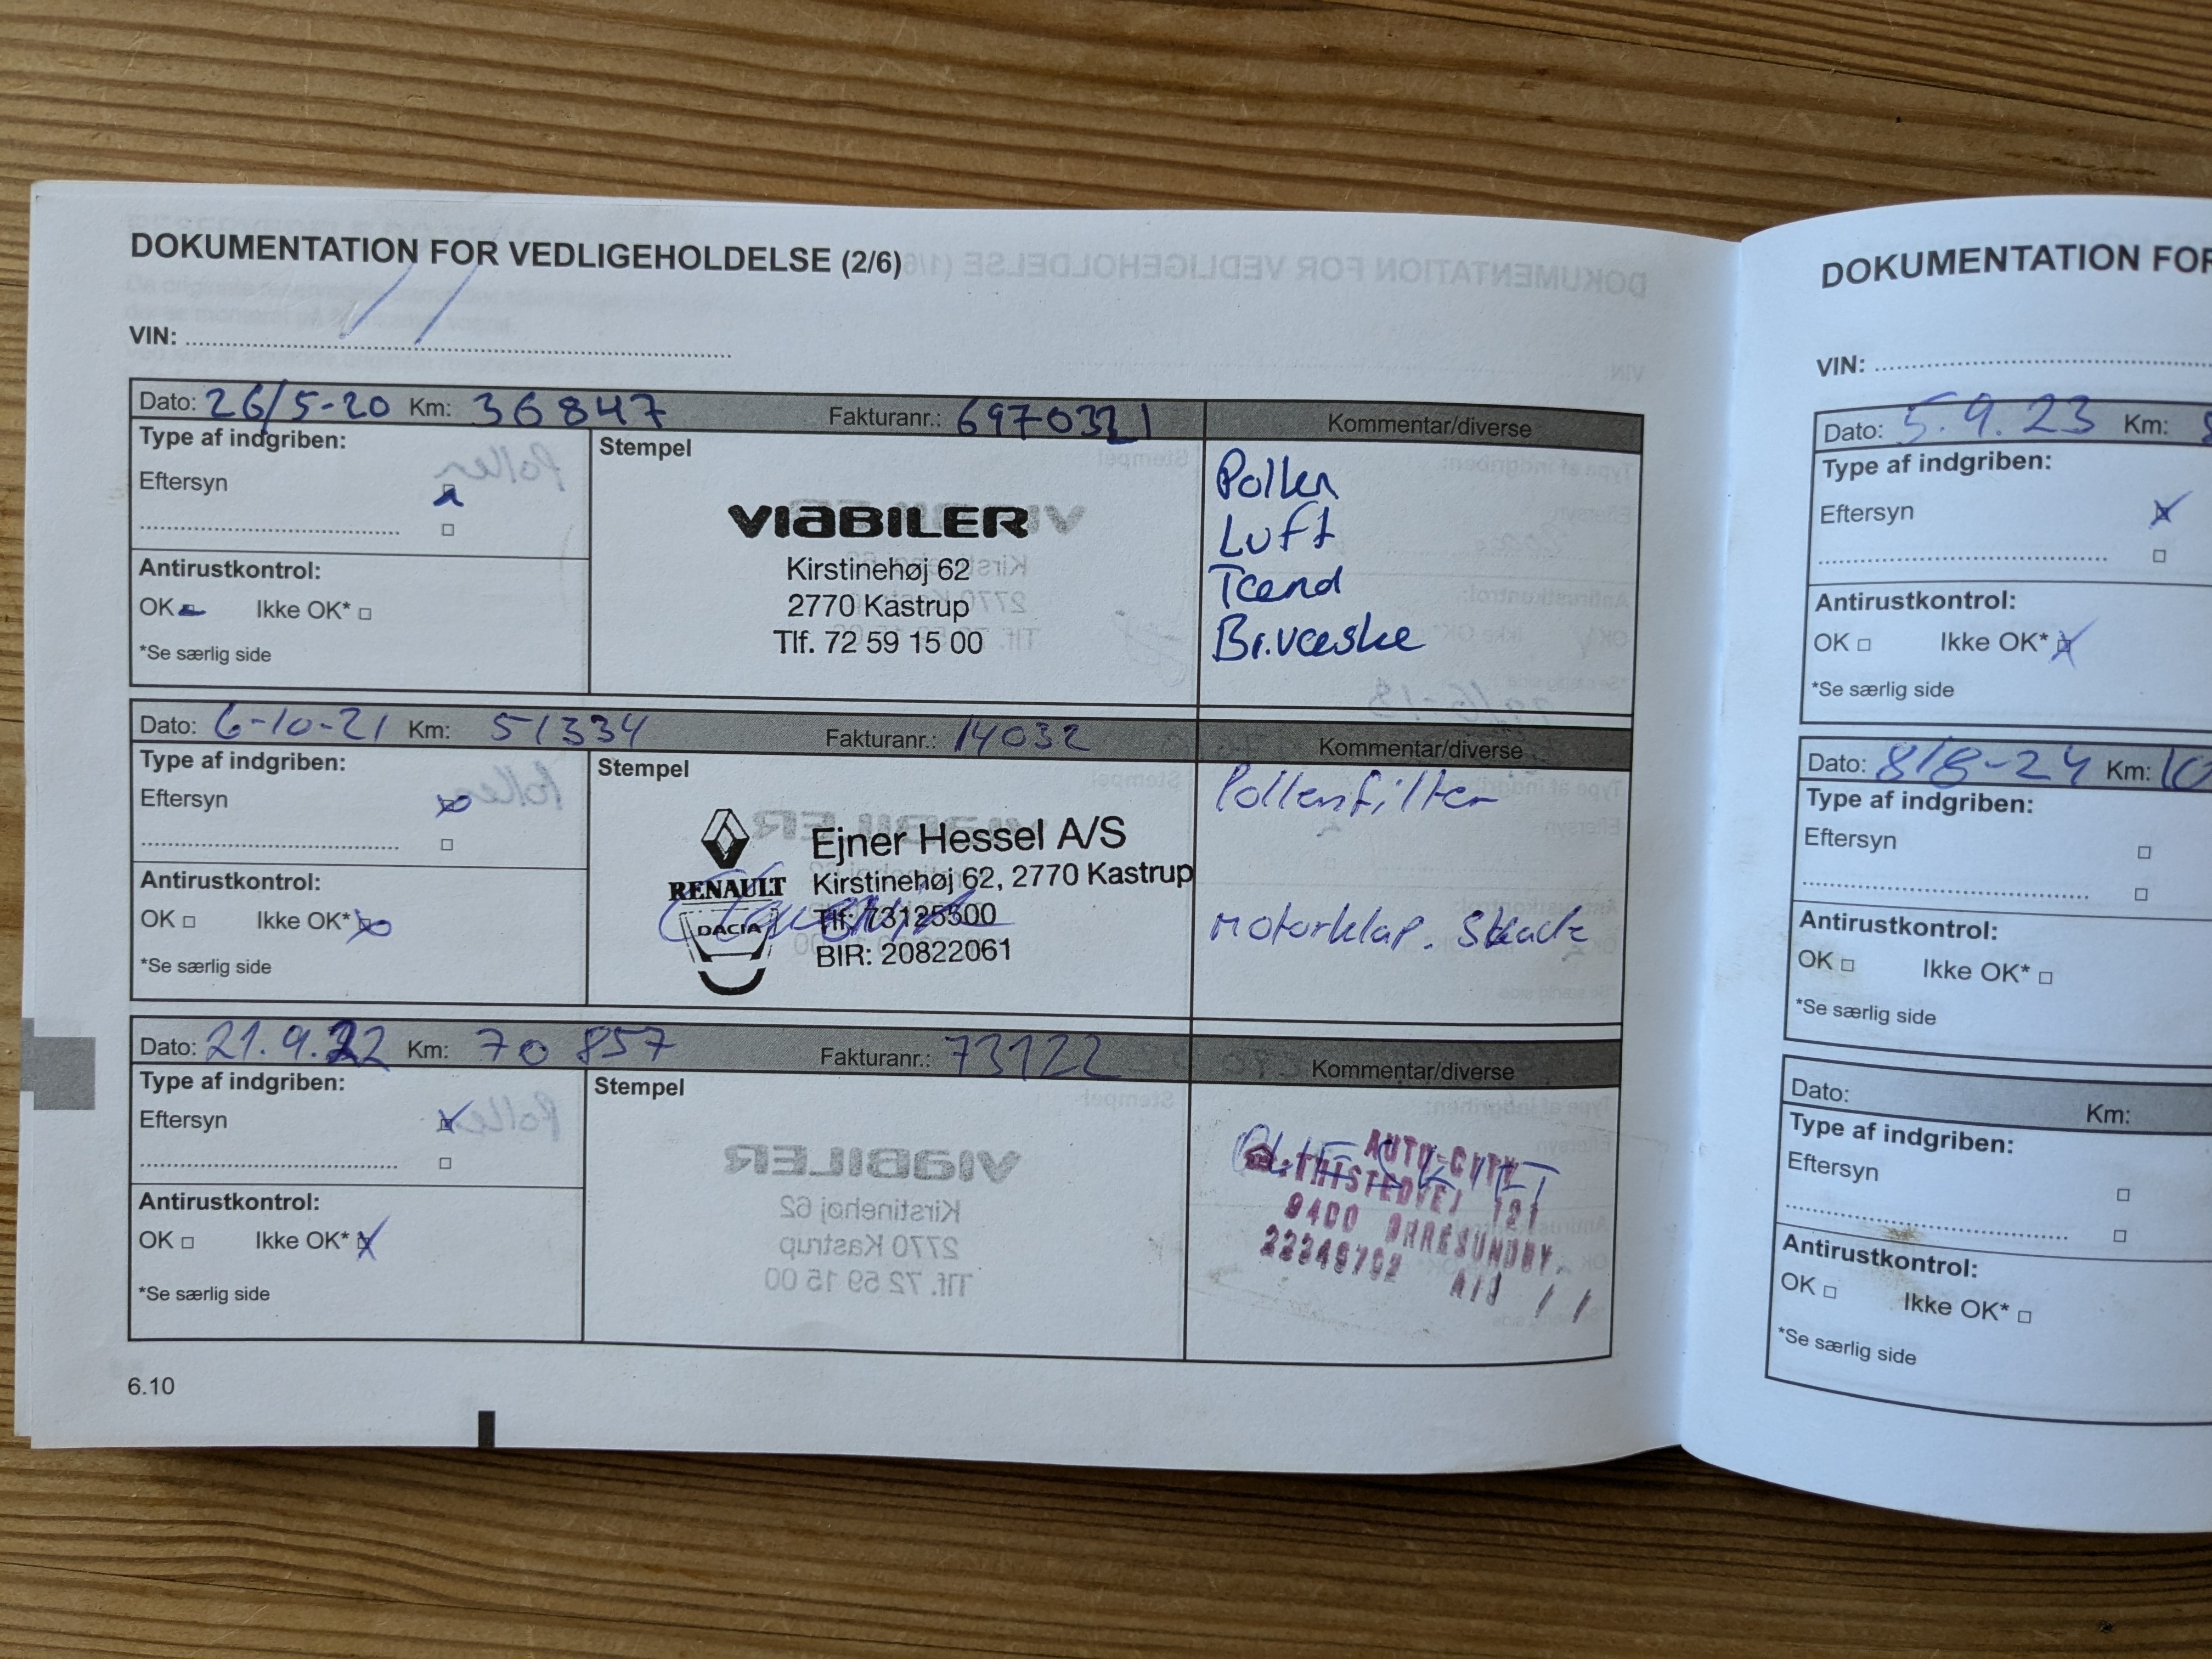 DOKUMENTATION FOR VEDLIGEHOLDELSE (2/6)
VIN:
Dato: 26/5-20 Km: 36847 Fakturanr.: 6970321 Kommentar/diverse
Type af indgriben:
Eftersyn
Antirustkontrol:
OK Ikke OK*
*Se særlig side
Stempel
VIABILER
Kirstinehøj 62
2770 Kastrup
Tlf. 72 59 15 00
Pollen
Luft
Tænd
Br.væske
Dato: 6-10-21 Km: 51334 Fakturanr.: 14032 Kommentar/diverse
Type af indgriben:
Eftersyn
Antirustkontrol:
OK Ikke OK*
*Se særlig side
Stempel
RENAULT
DACIA
Ejner Hessel A/S
Kirstinehøj 62, 2770 Kastrup
Tlf: 73125500
BIR: 20822061
Pollenfilter
Motorklap. Skade
Dato: 21.9.22 Km: 70 857 Fakturanr.: 73122 Kommentar/diverse
Type af indgriben:
Eftersyn
Antirustkontrol:
OK Ikke OK*
*Se særlig side
Stempel
AUTO-CITY
THISTEDVEJ 121
9400 NRRESUNDBY.
6.10
DOKUMENTATION FOR
VIN:
Dato: 5.9.23 Km:
Type af indgriben:
Eftersyn
Antirustkontrol:
OK Ikke OK*
*Se særlig side
Dato: 8/8-24 Km: 10
Type af indgriben:
Eftersyn
Antirustkontrol:
OK Ikke OK*
*Se særlig side
Dato: Km:
Type af indgriben:
Eftersyn
Antirustkontrol:
OK Ikke OK*
*Se særlig side